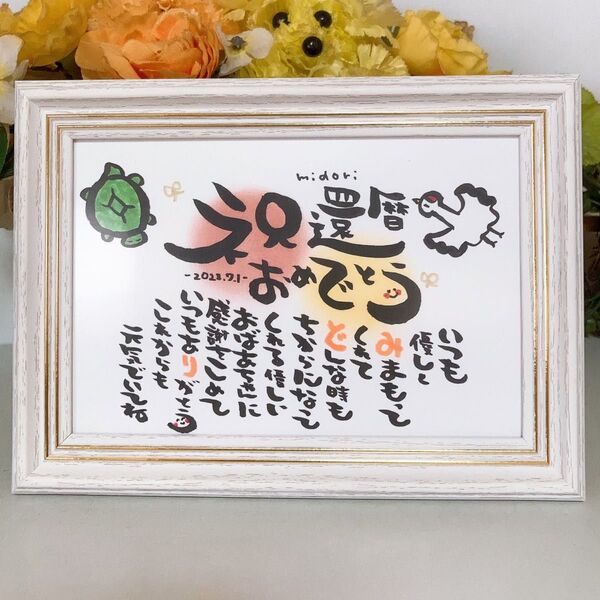 midori
祝還暦
おめでとう
-2023.9.1-
いつも
優しく
みまもって
くれて
どんな時も
ちからになって
くれる優しい
おばあちゃんに
感謝をこめて
いつもありがとう
これからも
元気でいてね